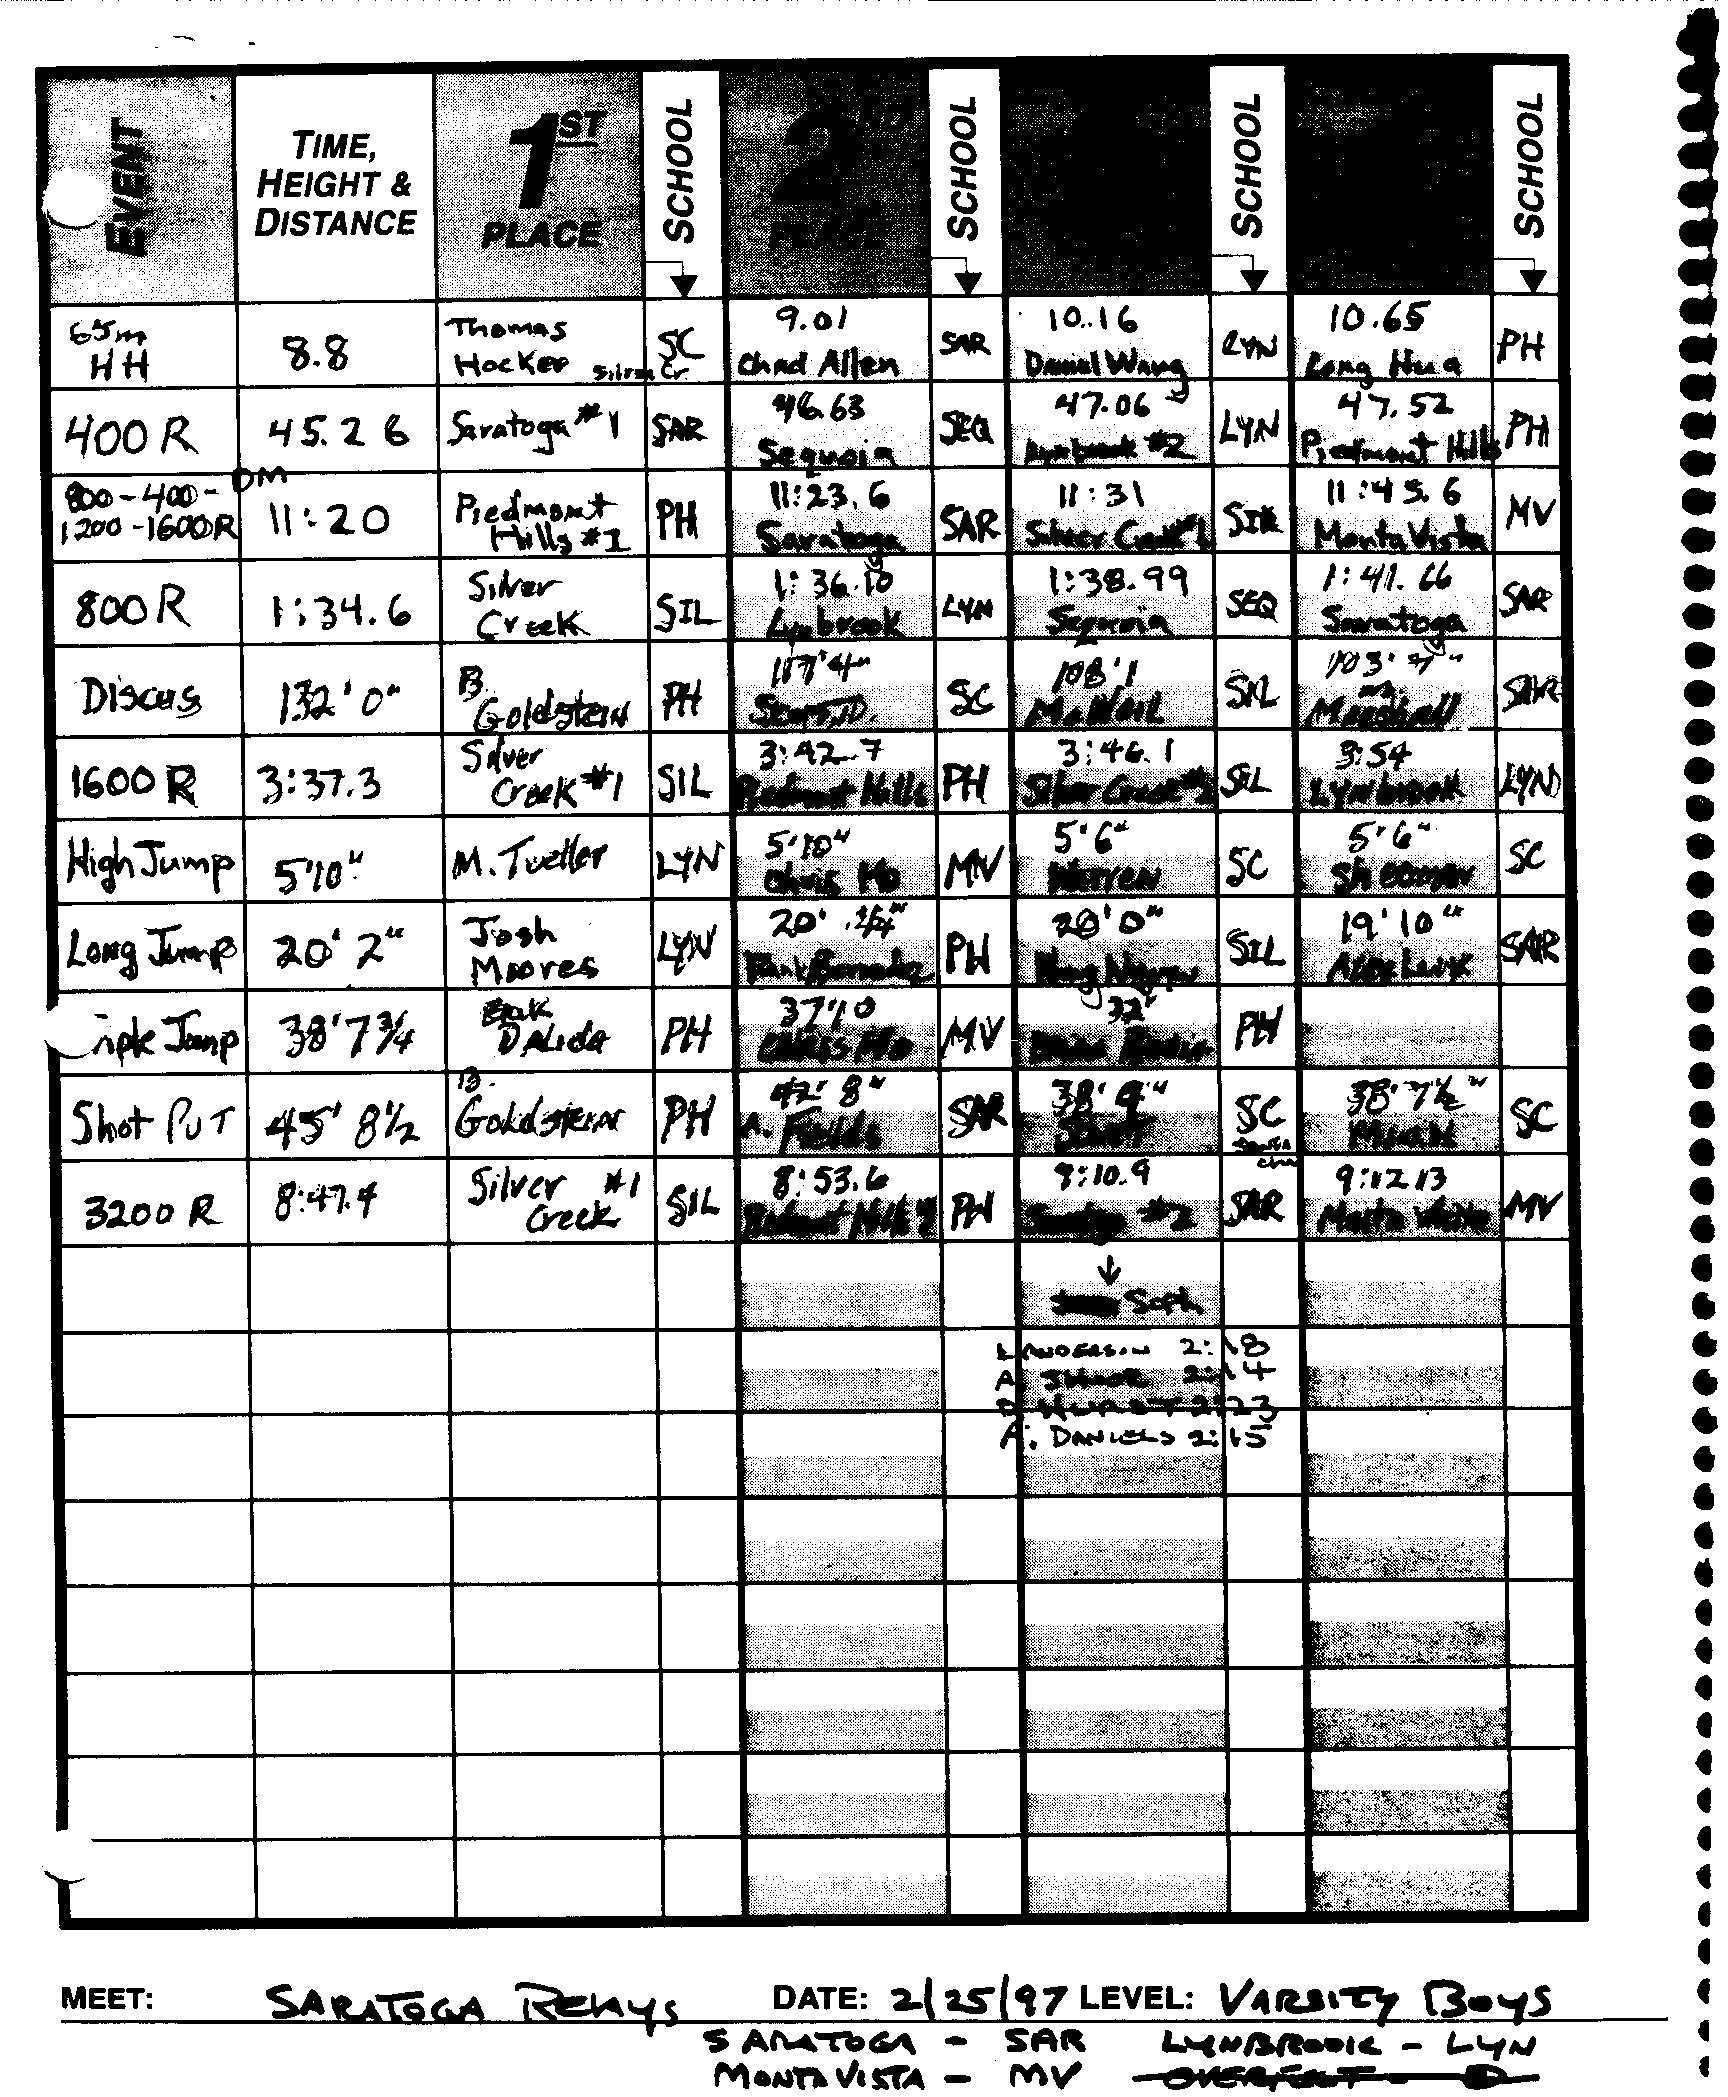 EVENT TIME, HEIGHT & DISTANCE 1ST PLACE SCHOOL 2ND PLACE SCHOOL SCHOOL SCHOOL
65m HH 8.8 Thomas Hocker Silver Cr. SC 9.01 Chad Allen SAR 10.16 Daniel Wang LYN 10.65 Long Hua PH
400 R 45.26 Saratoga #1 SAR 46.63 Sequoia SEQ 47.06 Lynbrook #2 LYN 47.52 Piedmont Hills PH
800-400-1200-1600R DM 11:20 Piedmont Hills #1 PH 11:23.6 Saratoga SAR 11:31 Silver Creek #1 SIL 11:45.6 Monta Vista MV
800 R 1:34.6 Silver Creek SIL 1:36.10 Lynbrook LYN 1:38.99 Sequoia SEQ 1:41.66 Saratoga SAR
Discus 132'0" B. Goldstein PH 117'4" SC 108'1 McWeil SIL 103'7" Marshall SAR
1600 R 3:37.3 Silver Creek #1 SIL 3:42.7 Piedmont Hills PH 3:46.1 Silver Creek #2 SIL 3:54 Lynbrook LYN
High Jump 5'10" M. Tueller LYN 5'10" Chris Ho MV 5'6" Warren SC 5'6" SC
Long Jump 20'2" Josh Moores LYN 20' PH 20'0" SIL 19'10" SAR
Triple Jump 38'7 3/4 Dalida PH 37'10 Chris Ho MV 32' PH
Shot Put 45' 8 1/2 B. Goldstein PH 42'8" A. Fields SAR 38'9" SC Santa Clara 38'7 1/2" SC
3200 R 8:47.4 Silver Creek #1 SIL 8:53.6 Piedmont Hills PH 9:10.9 Saratoga #2 SAR 9:12.13 MV
↓
Soph
L ANDERSON 2:18
A. 2:14
D. 2:23
A. DANIELS 2:15
MEET: SARATOGA RELAYS DATE: 2/25/97 LEVEL: VARSITY BOYS
SARATOGA - SAR LYNBROOK - LYN
MONTA VISTA - MV